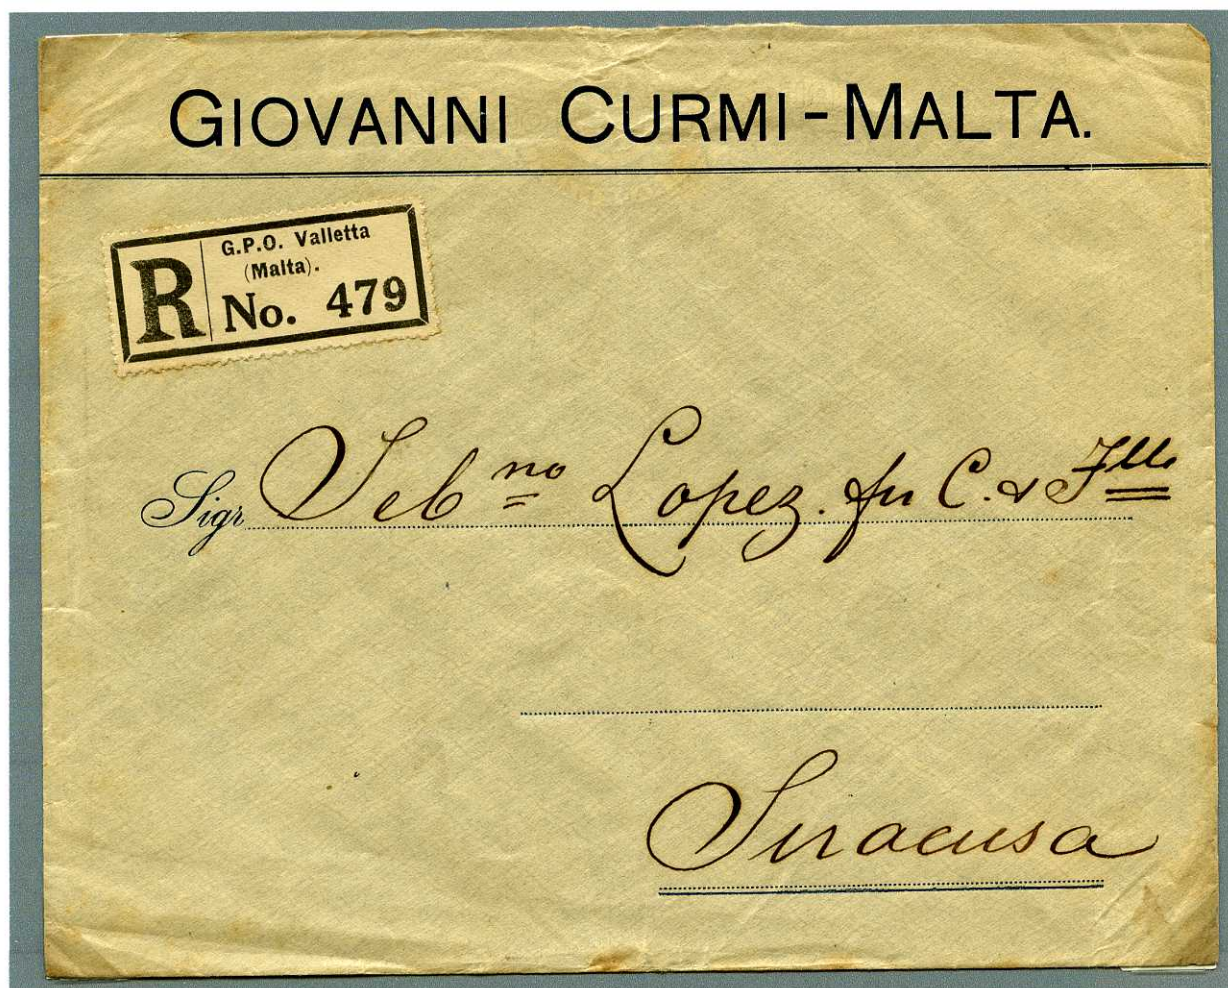 GIOVANNI CURMI - MALTA.
R
G.P.O. Valletta
(Malta).
No. 479
Sigr Seb no Lopez. fu C. & Flli
Siracusa